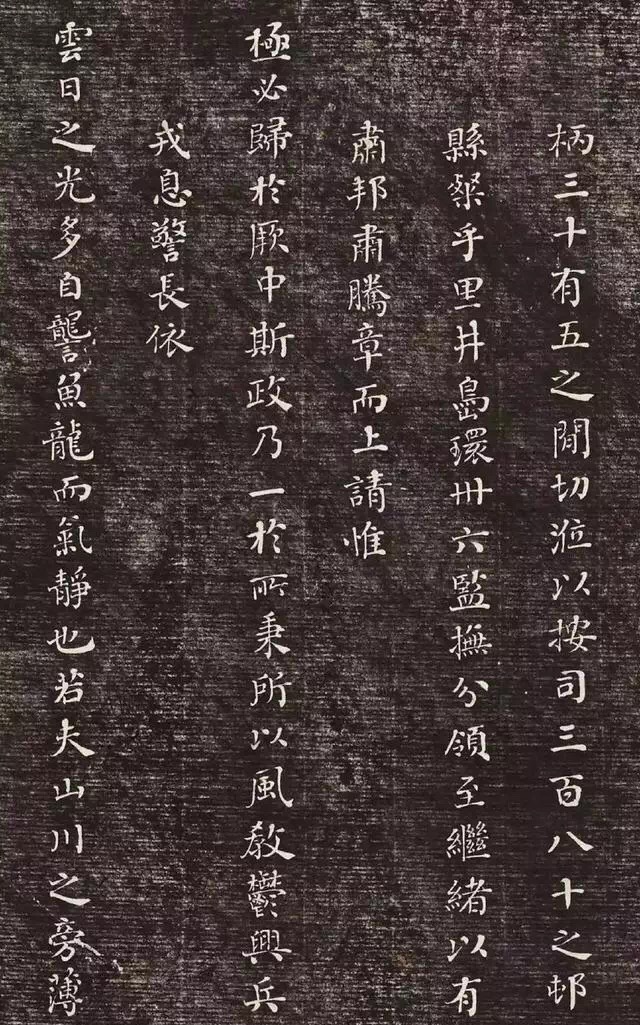 柄三十有五之間切涖以按司三百八十之邨
縣粲乎里井島環卅六監撫分領至繼緒以有
肅邦肅騰章而上請惟
極必歸於厥中斯政乃一於所秉所以風敎鬱興兵
戎息警長依
雲日之光多自讋魚龍而氣靜也若夫山川之旁薄